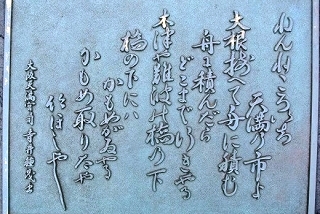 ねんねころいち
天満の市よ
大根揃て舟に積む
舟に積んだら
どこまでいきやる
木津や難波の橋の下
橋の下にハ
かもめがゐやる
かもめ取りたや
ほしや
大阪天満宮宮司 寺井